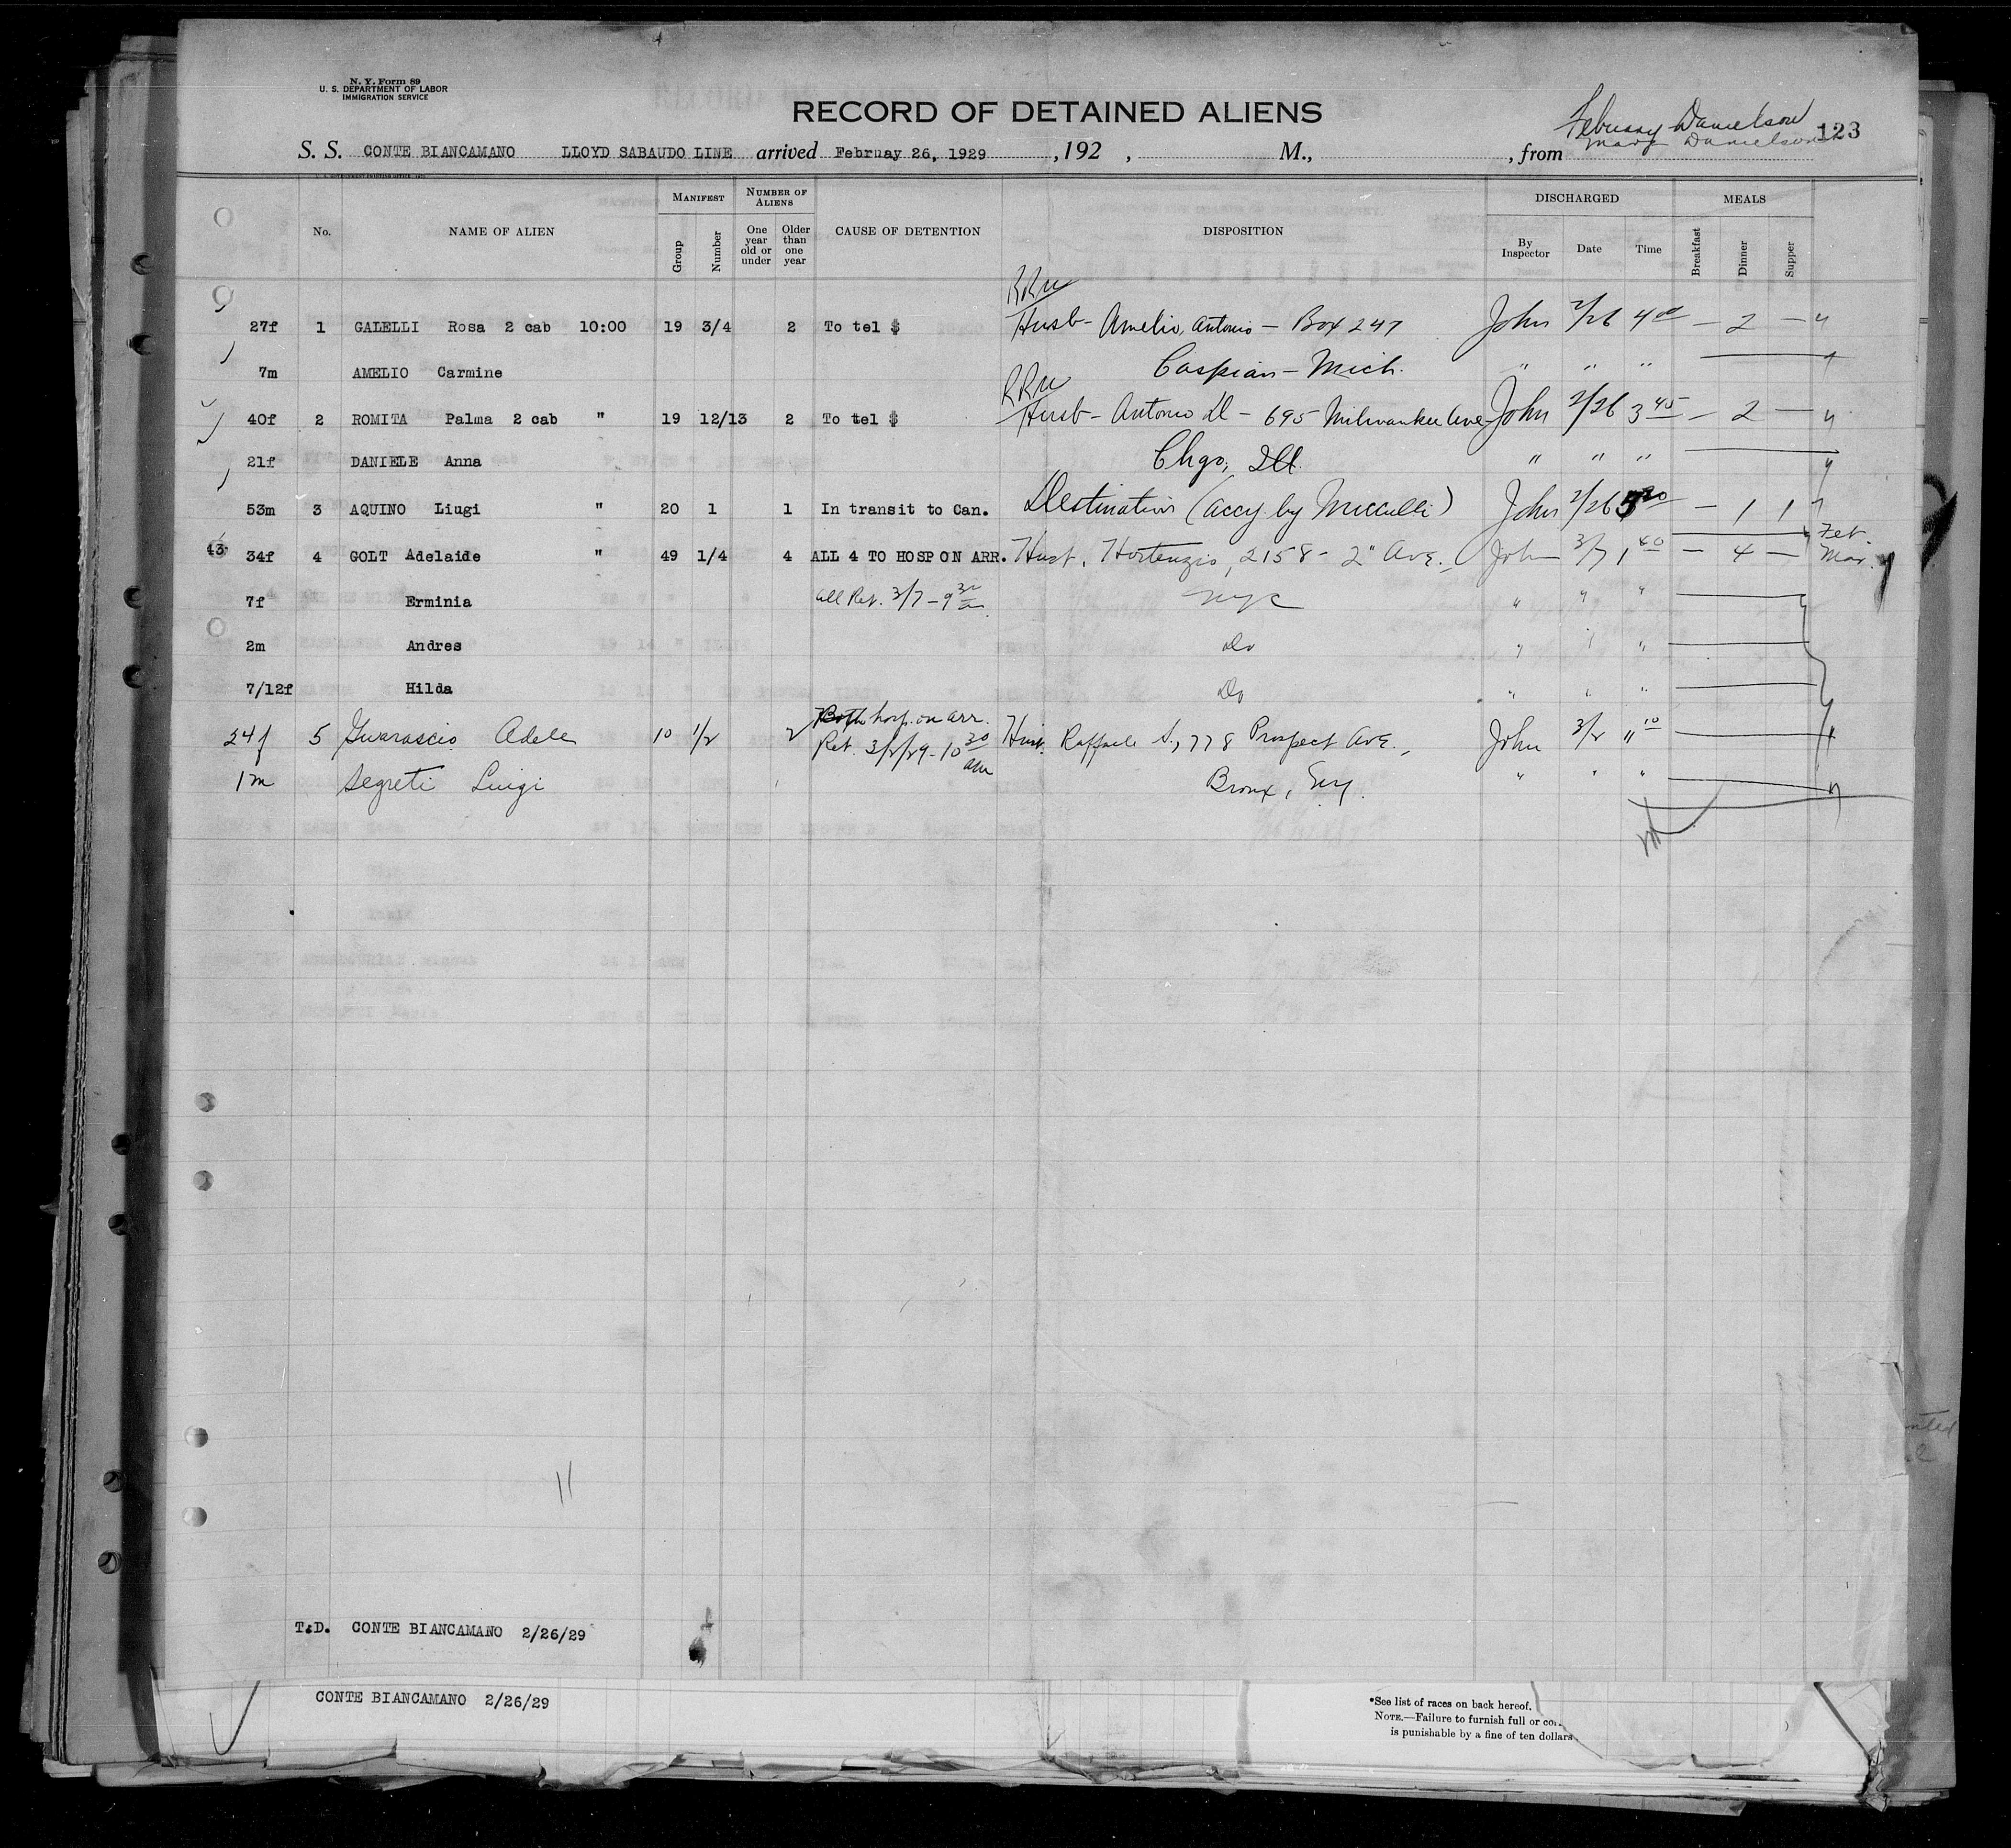 N. Y. Form 89
U. S. DEPARTMENT OF LABOR
IMMIGRATION SERVICE
RECORD OF DETAINED ALIENS
Danielson
123
S. S. CONTE BIANCAMANO LLOYD SABAUDO LINE arrived Februay 26, 1929 , 192 , M., , from Mary Danielson
No. NAME OF ALIEN MANIFEST Group Number NUMBER OF ALIENS One year old or under Older than one year CAUSE OF DETENTION DISPOSITION DISCHARGED By Inspector Date Time MEALS Breakfast Dinner Supper
RRW
27f 1 GALELLI Rosa 2 cab 10:00 19 3/4 2 To tel $ Husb - Amelio, Antonio - Box 247 John 2/26 4 00 — 2 — "
7m AMELIO Carmine Caspian - Mich. " " "
RRW
40f 2 ROMITA Palma 2 cab " 19 12/13 2 To tel $ Husb - Antonio D - 695 Milwaukee Ave John 2/26 3 45 — 2 — "
21f DANIELE Anna Chgo, Ill. " " "
53m 3 AQUINO Liugi " 20 1 1 In transit to Can. Destination (accy by Micculli) John 2/26 5 20 — 1 1
43 34f 4 GOLT Adelaide " 49 1/4 4 ALL 4 TO HOSP ON ARR. Husb, Hortenzio, 2158 - 2" Ave. John 3/7 1 40 — 4 — Feb. Mar.
7f Erminia all Ret. 3/7 - 9 30 am NYC " " "
2m Andres Do " " "
7/12f Hilda Do " " "
24f 5 Guarascio Adele 10 1/2 2 Both hosp. on arr. Ret. 3/2/29 - 10 30 am Husb. Raffaele S., 778 Prospect Ave., John 3/2 " 10
1m Segreti Luigi Bronx, NY. " " "
T.D. CONTE BIANCAMANO 2/26/29
CONTE BIANCAMANO 2/26/29
*See list of races on back hereof.
NOTE.—Failure to furnish full or
is punishable by a fine of ten dollars